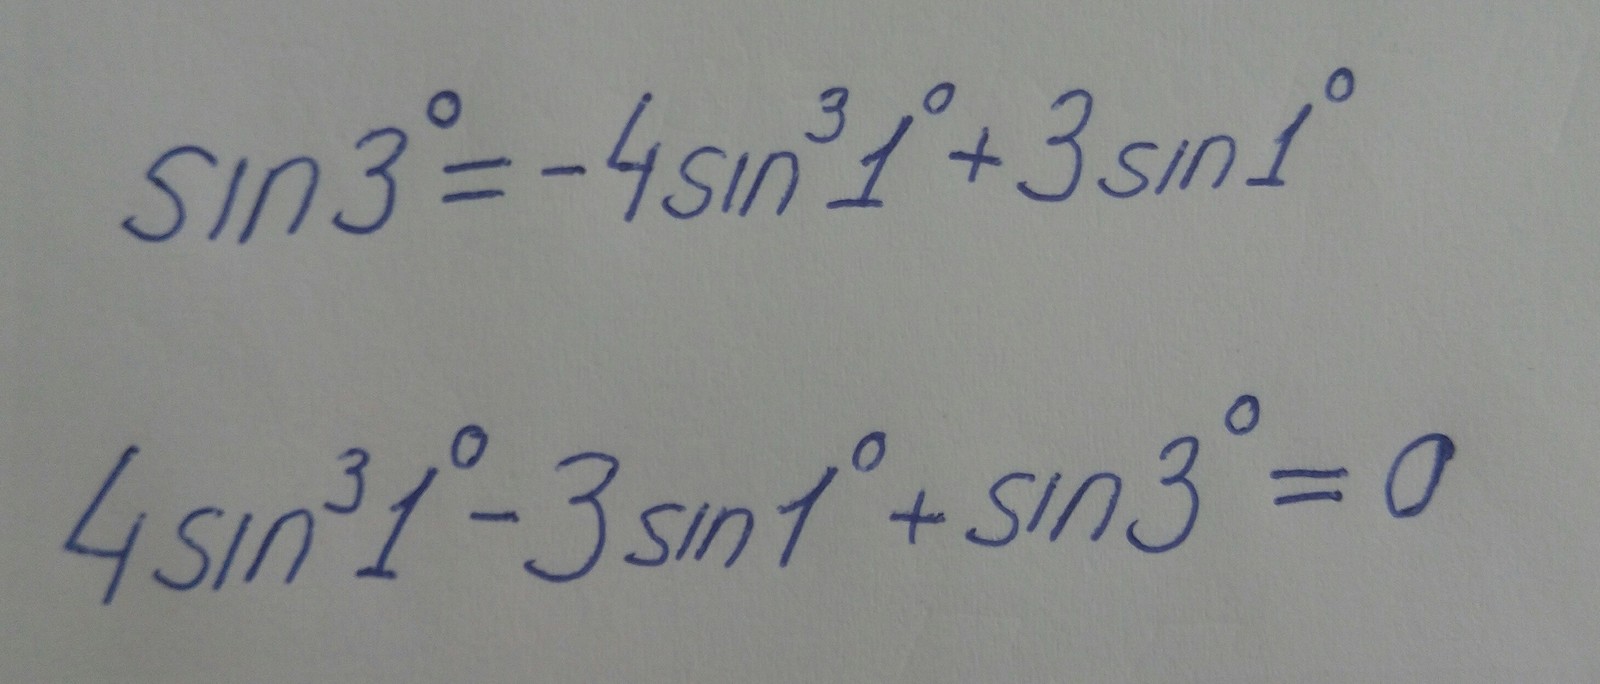 sin3°=-4sin³1°+3sin1°
4sin³1°-3sin1°+sin3°=0